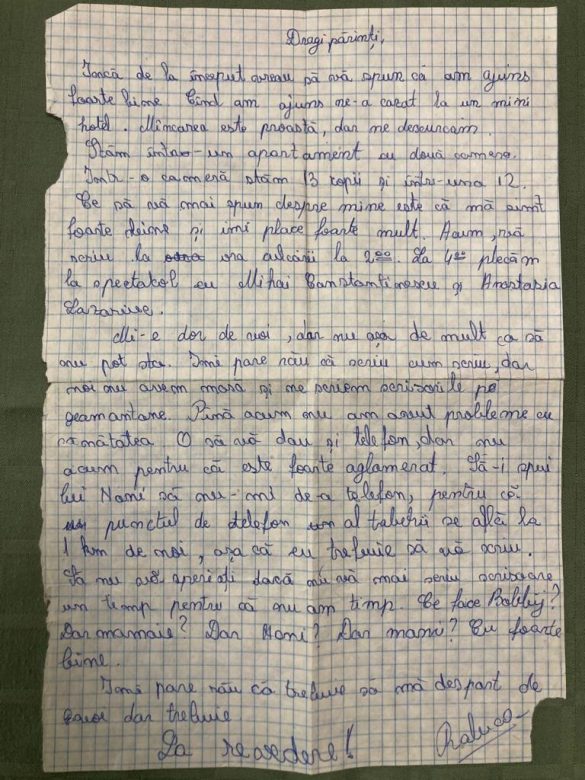 Dragi părinți,
Încă de la început vreau să vă spun că am ajuns
foarte bine. Cînd am ajuns ne-a cazat la un mini
hotel. Mîncarea este proastă, dar ne descurcăm.
Stăm într-un apartament cu două camere.
Într-o cameră stăm 13 copii și într-una 12.
Ce să vă mai spun despre mine este că mă simt
foarte bine și îmi place foarte mult. Acum, vă
scriu la ora adică la 2⁰⁰. La 4⁰⁰ plecăm
la spectacol cu Mihai Constantinescu și Anastasia
Lazariuc.
Mi-e dor de voi, dar nu așa de mult ca să
nu pot sta. Îmi pare rău că scriu cum scriu, dar
noi nu avem masă și ne scriem scrisorile pe
geamantane. Pînă acum nu am avut probleme cu
sănătatea. O să vă dau și telefon, dar nu
acum pentru că este foarte aglomerat. Să-i spui
lui Nani să nu-mi de-a telefon, pentru că
punctul de telefon al taberii se află la
1 km de noi, așa că eu trebuie să vă scriu.
Să nu vă speriați dacă nu vă mai scriu scrisoare
un timp pentru că nu am timp. Ce face Bobby?
Dar mamaie? Dar Nani? Dar mami? Eu foarte
bine.
Îmi pare rău că trebuie să mă despart de
dar trebuie
La revedere! Raluca